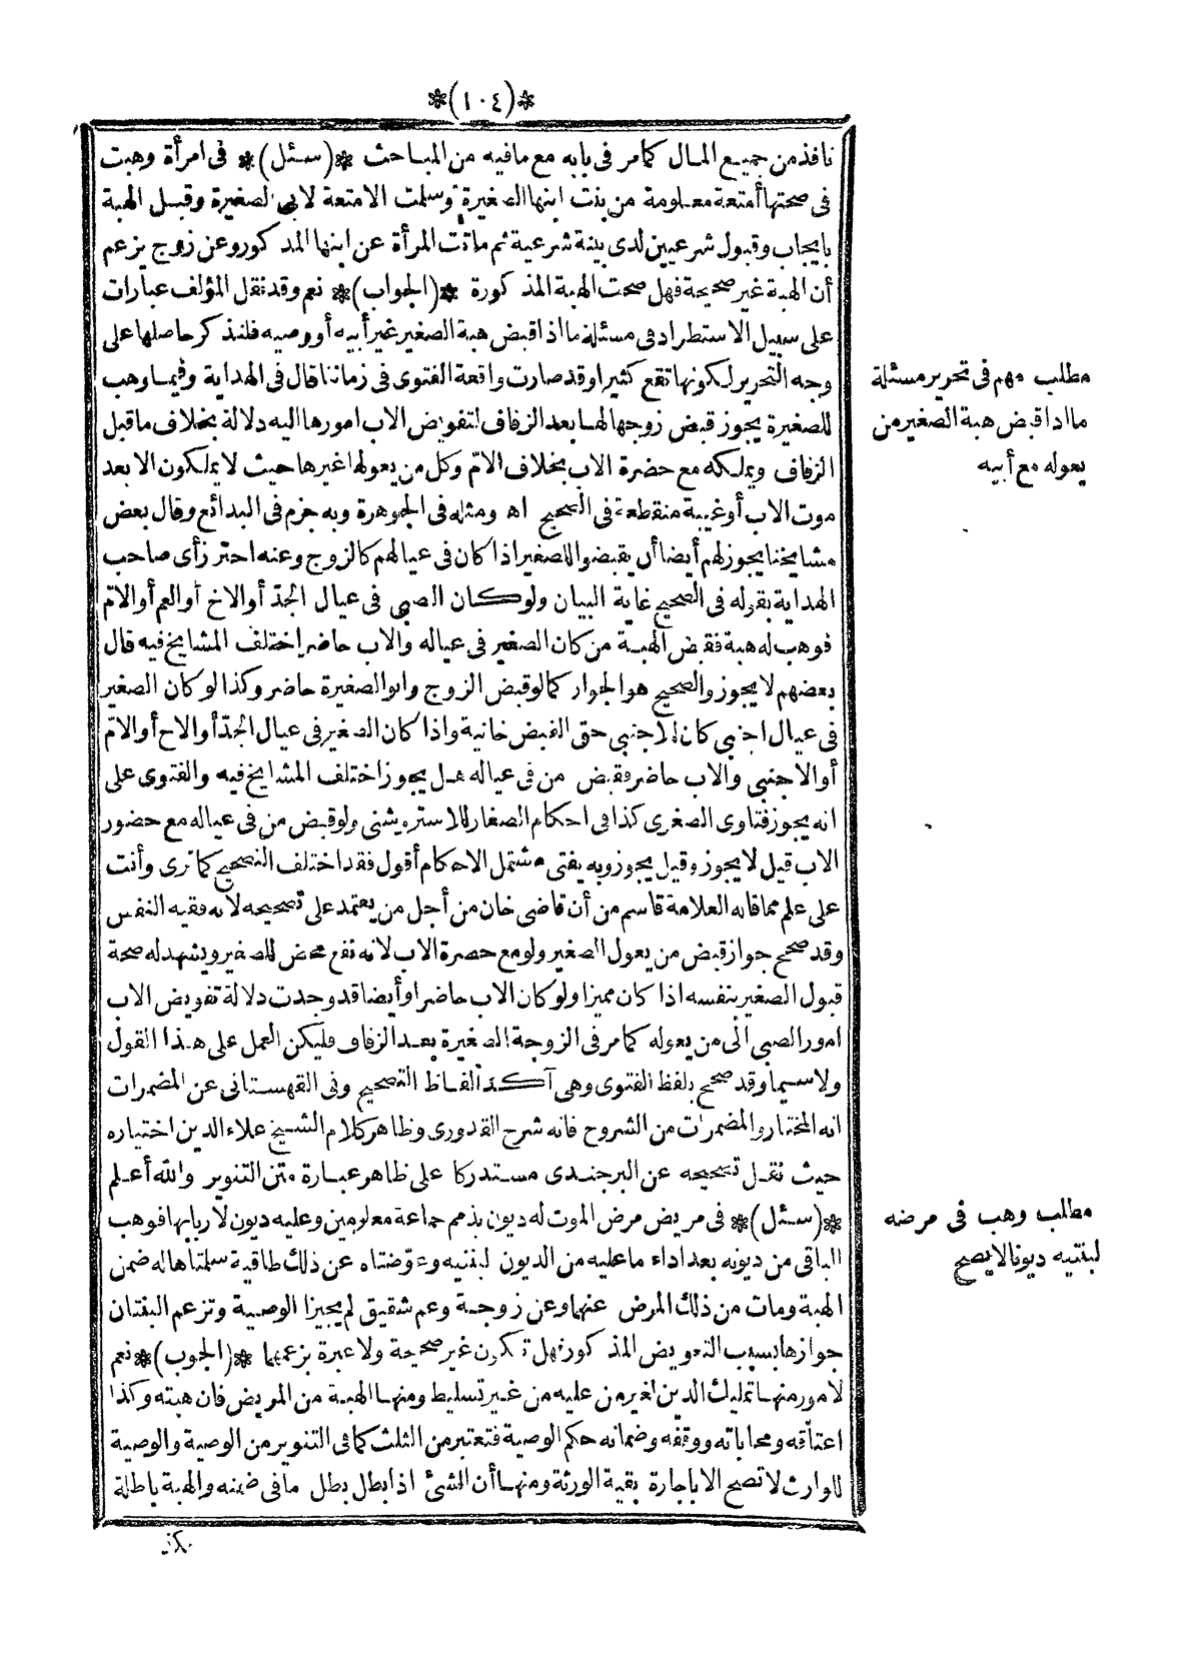 *(١٠٤)*
نافذ من جميع المال كما مر فى بابه مع ما فيه من المباحث *(سئل)* فى امرأة وهبت
فى صحتها أمتعة معلومة من بنت ابنها الصغيرة وسلمت الامتعة لابى الصغيرة وقبل الهبة
بايجاب وقبول شرعيين لدى بينة شرعية ثم ماتت المرأة عن ابنها المذكور وعن زوج يزعم
أن الهبة غير صحيحة فهل صحت الهبة المذكورة *(الجواب)* نعم وقد نقل المؤلف عبارات
على سبيل الاستطراد فى مسئلة ما اذا قبض هبة الصغير غير أبيه أو وصيه فلنذكر حاصلها على
وجه التحرير لكونها تقع كثيرا وقد صارت واقعة الفتوى فى زماننا قال فى الهداية وفيما وهب
للصغيرة يجوز قبض زوجها لها بعد الزفاف لتفويض الاب امورها اليه دلالة بخلاف ما قبل
الزفاف ويملكه مع حضرة الاب بخلاف الام وكل من يعولها غيرها حيث لا يملكون الا بعد
موت الاب أو غيبة منقطعة فى الصحيح اه ومثله فى الجوهرة وبه جزم فى البدائع وقال بعض
مشايخنا يجوز لهم أيضا أن يقبضوا للصغير اذا كان فى عيالهم كالزوج وعنه احترز أى صاحب
الهداية بقوله فى الصحيح غاية البيان ولو كان الصبى فى عيال الجد أو الاخ أو العم أو الام
فوهب له هبة فقبض الهبة من كان الصغير فى عياله والاب حاضر اختلف المشايخ فيه قال
بعضهم لا يجوز والصحيح هو الجواز كما لو قبض الزوج وابو الصغيرة حاضر وكذا لو كان الصغير
فى عيال اجنبى كان للاجنبى حق القبض خانية واذا كان الصغير فى عيال الجد أو الاخ أو الام
أو الاجنبى والاب حاضر فقبض من فى عياله هل يجوز اختلف المشايخ فيه والفتوى على
انه يجوز فتاوى الصغرى كذا فى احكام الصغار للاستروشنى ولو قبض من فى عياله مع حضور
الاب قيل لا يجوز وقيل يجوز وبه يفتى مشتمل الاحكام أقول فقد اختلف التصحيح كما ترى وأنت
على علم مما قاله العلامة قاسم من أن قاضى خان من أجل من يعتمد على تصحيحه لانه فقيه النفس
وقد صحح جواز قبض من يعول الصغير ولو مع حضرة الاب لانه نفع محض للصغير ويشهد له صحة
قبول الصغير بنفسه اذا كان مميزا ولو كان الاب حاضرا وأيضا قد وجدت دلالة تفويض الاب
امور الصبى الى من يعوله كما مر فى الزوجة الصغيرة بعد الزفاف فليكن العمل على هذا القول
ولا سيما وقد صحح بلفظ الفتوى وهى آكد ألفاظ التصحيح وفى القهستانى عن المضمرات
انه المختار والمضمرات من الشروح فانه شرح القدورى وظاهر كلام الشيخ علاء الدين اختياره
حيث نقل تصحيحه عن البرجندى مستدركا على ظاهر عبارة متن التنوير والله أعلم
*(سئل)* فى مريض مرض الموت له ديون بذمم جماعة معلومين وعليه ديون لاربابها فوهب
الباقى من ديونه بعد اداء ما عليه من الديون لبنتيه وعوضتاه عن ذلك طاقية سلمتاها له ضمن
الهبة ومات من ذلك المرض عنهما وعن زوجة وعم شقيق لم يجيزا الوصية وتزعم البنتان
جوازها بسبب التعويض المذكور فهل تكون غير صحيحة ولا عبرة بزعمهما *(الجوب)* نعم
لامور منها تمليك الدين لغير من عليه من غير تسليط ومنها الهبة من المريض فان هبته وكذا
اعتاقه ومحاباته ووقفه وضمانه حكم الوصية فتعتبر من الثلث كما فى التنوير من الوصية والوصية
للوارث لا تصح الا باجازة بقية الورثة ومنها أن الشئ اذا بطل بطل ما فى ضمنه والهبة باطلة
مطلب مهم فى تحرير مسئلة
ما اذا قبض هبة الصغير من
يعوله مع أبيه
مطلب وهب فى مرضه
لبنتيه ديونا لا يصح